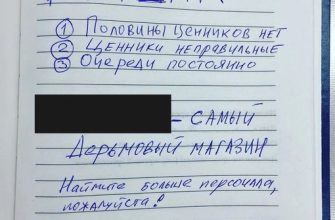 ① Половины ценников нет
② Ценники неправильные
③ Очереди постоянно
– самый
Дерьмовый магазин
Наймите больше персонала,
пожалуйста!